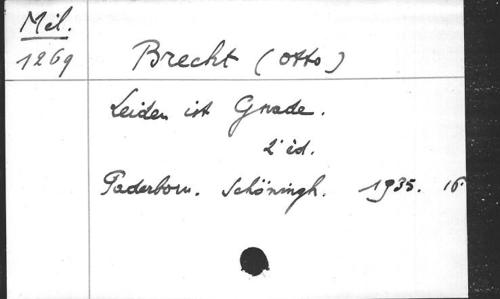 Mél.
1269
Brecht (Otto)
Leiden ist Gnade.
2 éd.
Paderborn. Schöningh. 1935. 16